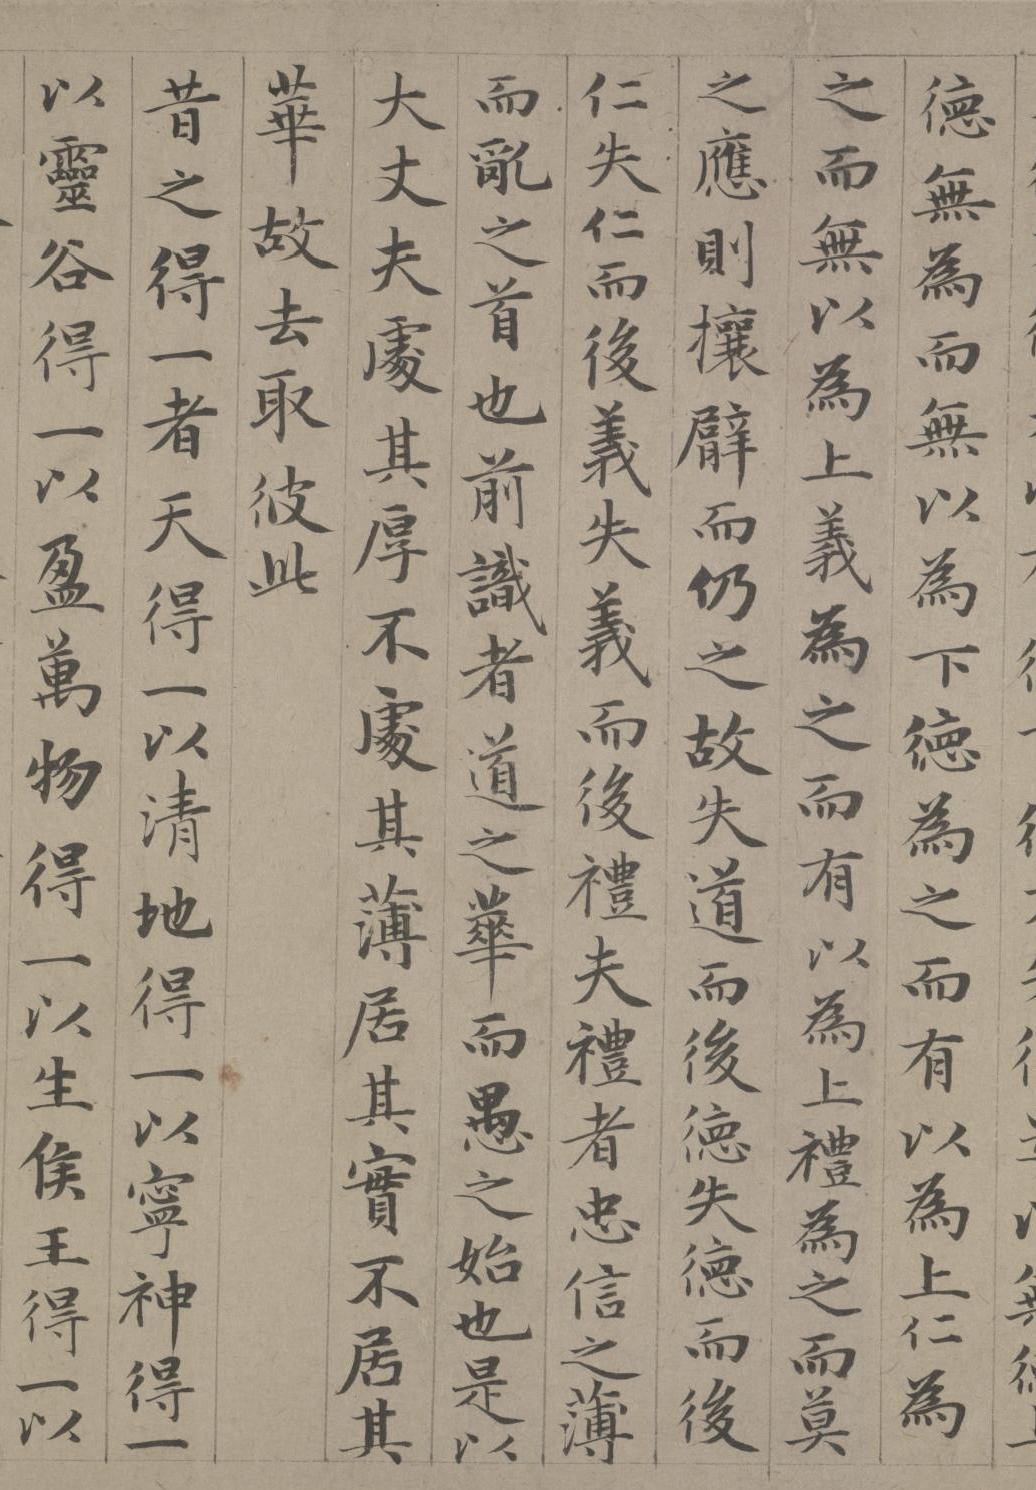 德無為而無以為下德為之而有以為上仁為
之而無以為上義為之而有以為上禮為之而莫
之應則攘臂而仍之故失道而後德失德而後
仁失仁而後義失義而後禮夫禮者忠信之薄
而亂之首也前識者道之華而愚之始也是以
大丈夫處其厚不處其薄居其實不居其
華故去取彼此
昔之得一者天得一以清地得一以寧神得一
以靈谷得一以盈萬物得一以生侯王得一以